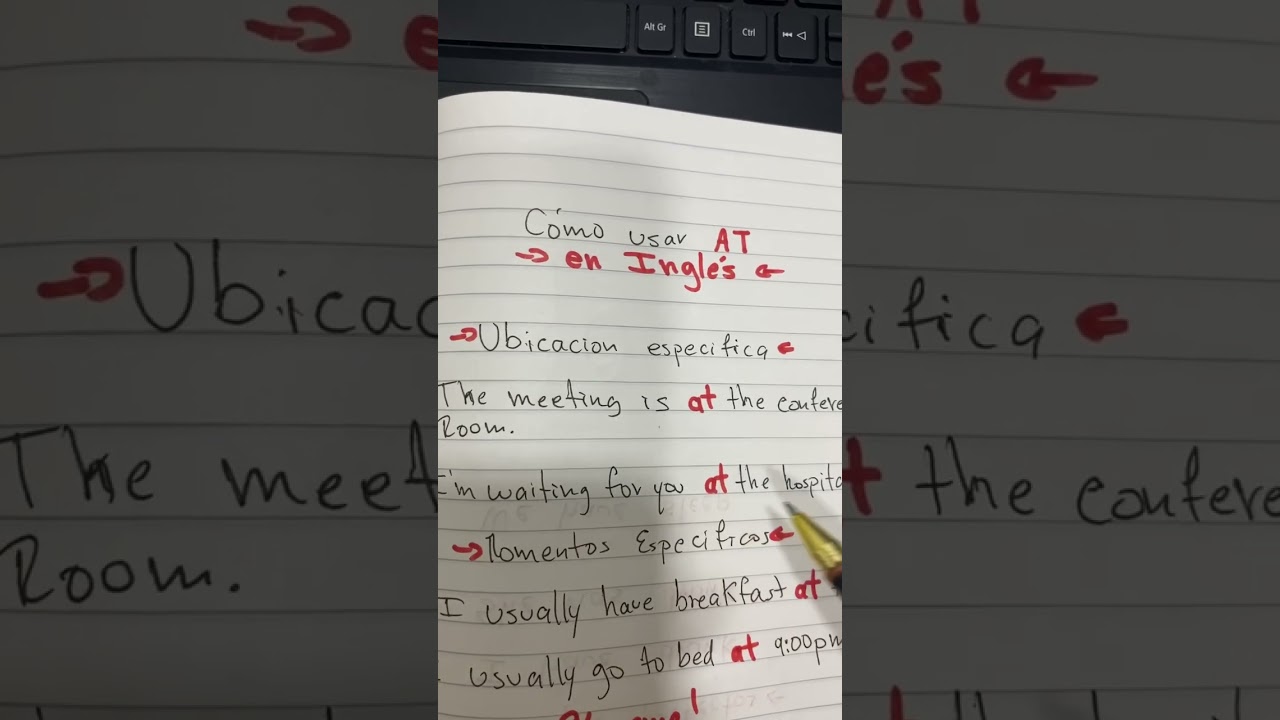 Alt Gr
Ctrl
Cómo usar AT
→ en Inglés ←
→ Ubicacion especifica ←
The meeting is at the confere
Room.
I'm waiting for you at the hospita
→ Momentos Especificos ←
I usually have breakfast at
usually go to bed at 9:00pm